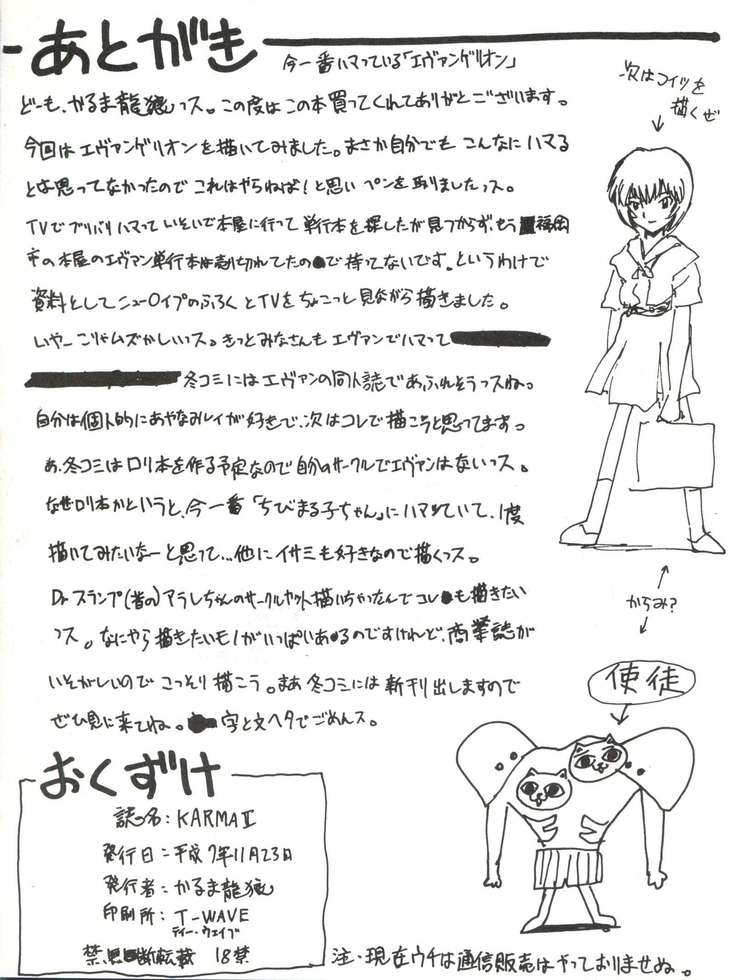 あとがき
今一番ハマっている「エヴァンゲリオン」
どーも、かるま龍狼っス。この度はこの本買ってくれてありがとございます。
今回はエヴァンゲリオンを描いてみました。まさか自分でもこんなにハマる
とは思ってなかったのでこれはやらねば!と思いペンを取りましたっス。
TVでバリバリハマっていそいで本屋に行って単行本を探したが見つからず、もう福岡
市の本屋のエヴァン単行本は売り切れてたので持ってないです。というわけで
資料としてニュータイプのふろくとTVをちょこっと見ながら描きました。
いやーこりゃムズかしいっス。きっとみなさんもエヴァンでハマって
冬コミにはエヴァンの同人誌であふれそうっスね。
自分は個人的にあやなみレイが好きで、次はコレで描こうと思ってます。
あ、冬コミはロリ本を作る予定なので自分のサークルでエヴァンはないっス。
なぜロリ本かというと、今一番「ちびまる子ちゃん」にハマっていて、1度
描いてみたいなーと思って…他にイサミも好きなので描くっス。
Dr.スランプ(昔の)アラレちゃんのサークルカット描いちゃたんでコレも描きたい
っス。なにやら描きたいモノがいっぱいあるのですけれど、商業誌が
いそがしいのでこっそり描こう。まあ冬コミには新刊出しますので
ぜひ見に来てね。字と文ヘタでごめんス。
次はコイツを
描くぜ
からみ?
使徒
おくずけ
誌名:KARMAⅡ
発行日:平成7年11月23日
発行者:かるま龍狼
印刷所:T-WAVE
ティー・ウェイブ
禁断転載 18禁
注・現在ウチは通信販売はやっておりませぬ。